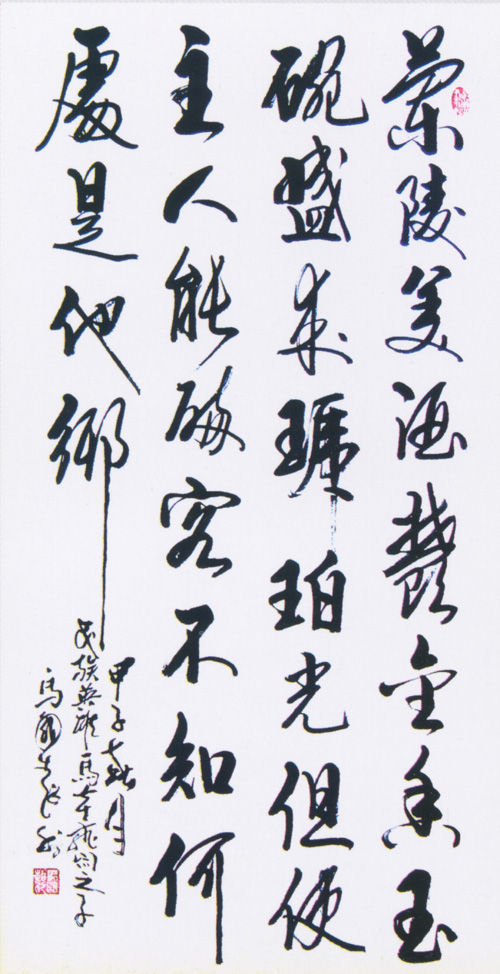 蘭陵美酒鬱金香玉
碗盛来琥珀光但使
主人能醉客不知何
處是他鄉
甲子春月
民族英雄馬本斋之子
馬國